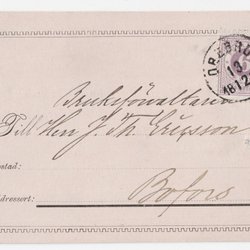 ÖREBRO
13
1872
Bruksförvaltaren
Till Herr J. Th. Ericsson
stad:
Bofors
dressort: